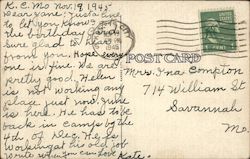 K.C. Mo Nov. 19 1945
Dear Jane: Just a line
to let you know I got
the birthday cards
sure glad to hear
from you. Hope every
one is fine. We are
pretty good. Helen
is not working any
place just now. June
is here. He has to be
back in camp by the
4th. of Dec. He is
working at his old job
write when you can
Kate.
1945
POST CARD
Mrs. Ina Compton
714 William St
Savannah
Mo